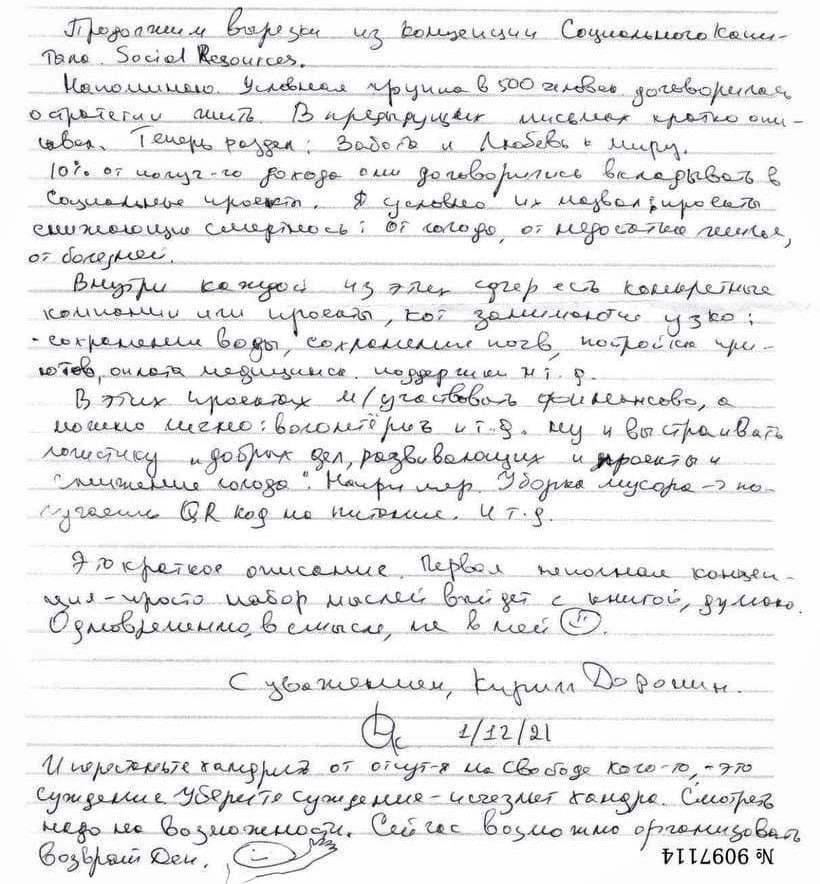 Продолжим вырезки из концепции Социального Капи-
тала. Social Resources.
Напоминаю. Условная группа в 500 человек договорилась
о стратегии жить. В предыдущих письмах кратко опи-
сывал. Теперь раздел: Забота и Любовь к миру.
10% от получ-го дохода они договорились вкладывать в
Социальные проекты. Я условно их назвал: проекты
снижающие смертность: от голода, от недостатка жилья,
от болезней.
Внутри каждой из этих сфер есть конкретные
компании или проекты, кот занимаются узко:
- сохранением воды, сохранение почв, постройка при-
ютов, оплата медицинск. поддержки и т. д.
В этих проектах м/участвовать финансово, а
можно лично: волонтёрить и т.д. Ну и выстраивать
логистику "добрых дел, развивающих и проекты и
снижение голода". Например. Уборка мусора -> по-
лучаешь QR код на питание. И т.д.
Это краткое описание. Первая неполная концеп-
ция - просто набор мыслей выйдет с книгой, думаю.
Одновременно, в смысле, не в ней
С уважением, Кирилл Доронин.
1/12/21
И перестаньте хандрить от отсут-я на свободе кого-то, - это
суждение. Уберёте суждение - исчезнет хандра. Смотреть
надо на возможности. Сейчас возможно организовать
возврат Ден.
№ 9097114